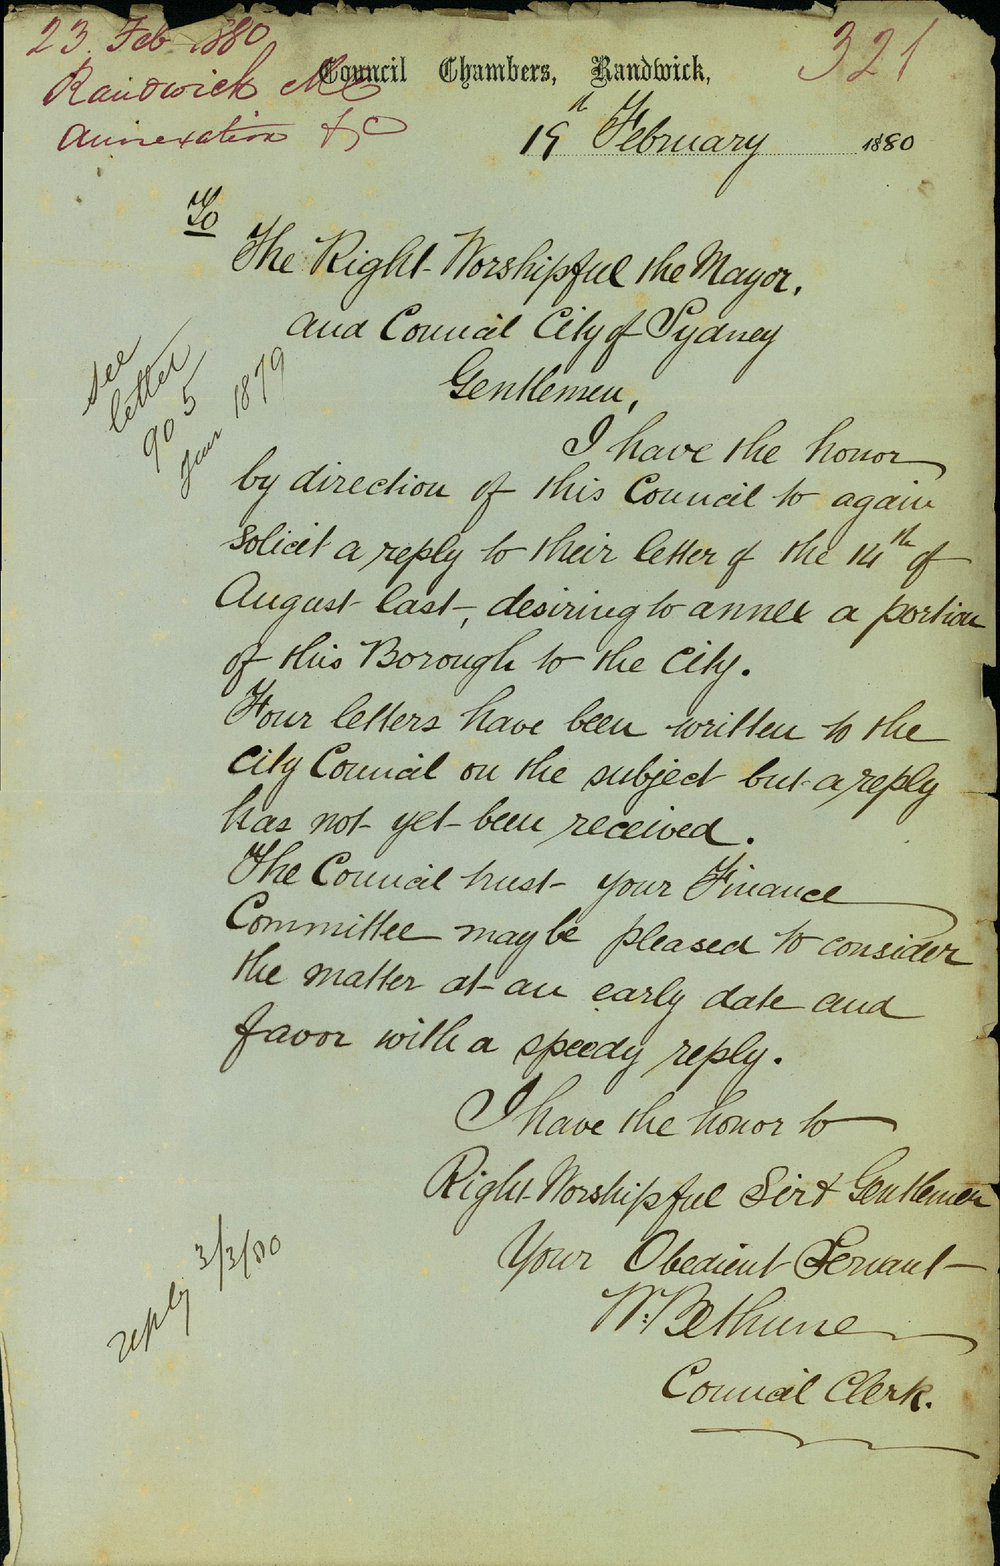 23 Feb 1880
321
Randwick M C
Annexation &c
Council Chambers, Randwick,
19th February 1880
To
The Right Worshipful the Mayor.
and Council City of Sydney
Gentlemen,
see
letter
905
1879
I have the honor
by direction of this Council to again
solicit a reply to their letter of the 14th of
August last, desiring to annex a portion
of this Borough to the City.
Four letters have been written to the
City Council on the subject but a reply
has not yet been received.
The Council trust your Finance
Committee may be pleased to consider
the matter at an early date and
favor with a speedy reply.
I have the honor to
Right Worshipful Sir & Gentlemen
Your Obedient Servant
W. Bethune
Council Clerk.
reply 3/3/80